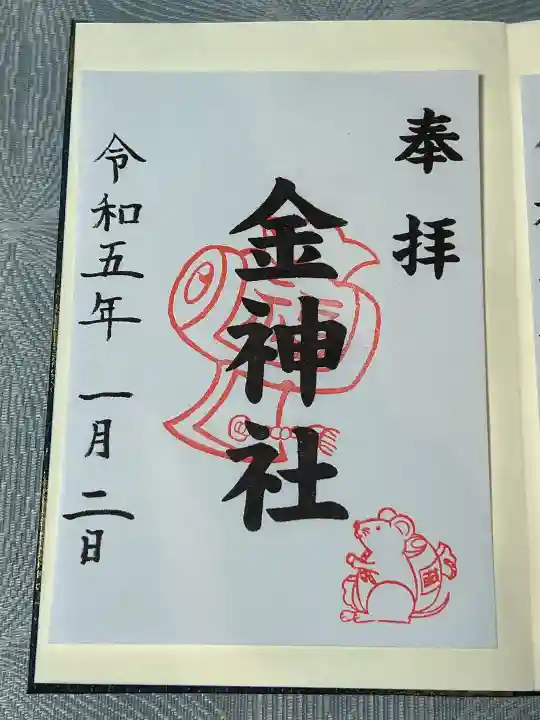 奉拝
金神社
令和五年一月二日